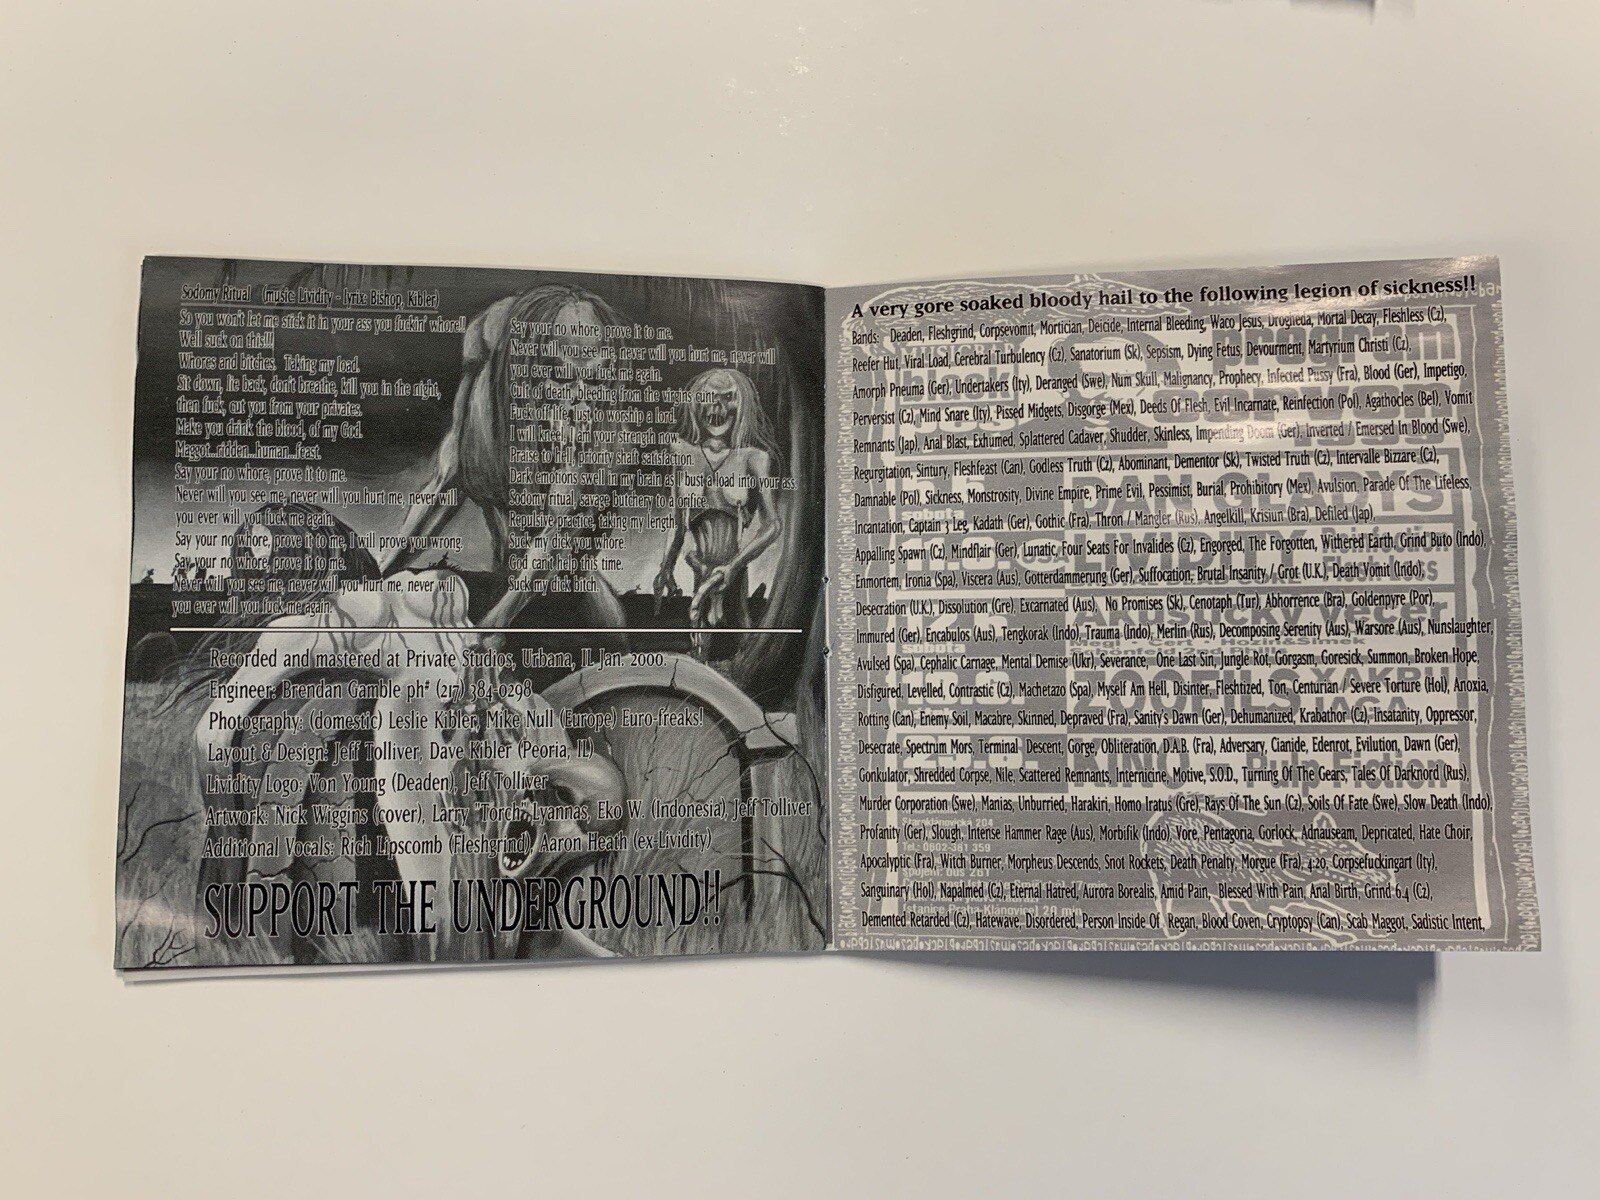 Sodomy Ritual (music: Lividity - lyrix: Bishop, Kibler)
So you won't let me stick it in your ass you fuckin' whore!!
Well suck on this!!!
Whores and bitches. Taking my load.
Sit down, lie back, don't breathe, kill you in the night,
then fuck, cut you from your privates.
Make you drink the blood, of my God.
Maggot...ridden...human...feast.
Say your no whore, prove it to me.
Never will you see me, never will you hurt me, never will
you ever will you fuck me again.
Say your no whore, prove it to me, I will prove you wrong.
Say your no whore, prove it to me.
Never will you see me, never will you hurt me, never will
you ever will you fuck me again.
Say your no whore, prove it to me.
Never will you see me, never will you hurt me, never will
you ever will you fuck me again.
Cult of death, bleeding from the virgins cunt.
Fuck off life, lust to worship a lord.
I will kneel, I am your strength now.
Praise to hell, priority shaft satisfaction.
Dark emotions swell in my brain as I bust a load into your ass.
Sodomy ritual, savage butchery to a orifice.
Repulsive practice, taking my length.
Suck my dick you whore.
God can't help this time.
Suck my dick bitch.
Recorded and mastered at Private Studios, Urbana, IL Jan. 2000.
Engineer: Brendan Gamble ph# (217) 384-0298
Photography: (domestic) Leslie Kibler, Mike Null (Europe) Euro-freaks!
Layout & Design: Jeff Tolliver, Dave Kibler (Peoria, IL)
Lividity Logo: Von Young (Deaden), Jeff Tolliver
Artwork: Nick Wiggins (cover), Larry "Torch" Lyannas, Eko W. (Indonesia), Jeff Tolliver
Additional Vocals: Rich Lipscomb (Fleshgrind), Aaron Heath (ex-Lividity)
SUPPORT THE UNDERGROUND!!
A very gore soaked bloody hail to the following legion of sickness!!
Bands: Deaden, Fleshgrind, Corpsevomit, Mortician, Deicide, Internal Bleeding, Waco Jesus, Drogheda, Mortal Decay, Fleshless (Cz),
Reefer Hut, Viral Load, Cerebral Turbulency (Cz), Sanatorium (Sk), Sepsism, Dying Fetus, Devourment, Martyrium Christi (Cz),
Amorph Pneuma (Ger), Undertakers (Ity), Deranged (Swe), Num Skull, Malignancy, Prophecy, Infected Pussy (Fra), Blood (Ger), Impetigo,
Perversist (Cz), Mind Snare (Ity), Pissed Midgets, Disgorge (Mex), Deeds Of Flesh, Evil Incarnate, Reinfection (Pol), Agathocles (Bel), Vomit
Remnants (Jap), Anal Blast, Exhumed, Splattered Cadaver, Shudder, Skinless, Impending Doom (Ger), Inverted / Emersed In Blood (Swe),
Regurgitation, Sintury, Fleshfeast (Can), Godless Truth (Cz), Abominant, Dementor (Sk), Twisted Truth (Cz), Intervalle Bizzare (Cz),
Damnable (Pol), Sickness, Monstrosity, Divine Empire, Prime Evil, Pessimist, Burial, Prohibitory (Mex), Avulsion, Parade Of The Lifeless,
Incantation, Captain 3 Leg, Kadath (Ger), Gothic (Fra), Thron / Mangler (Rus), Angelkill, Krisiun (Bra), Defiled (Jap),
Appalling Spawn (Cz), Mindflair (Ger), Lunatic, Four Seats For Invalides (Cz), Engorged, The Forgotten, Withered Earth, Grind Buto (Indo),
Enmortem, Ironia (Spa), Viscera (Aus), Gotterdammerung (Ger), Suffocation, Brutal Insanity / Grot (U.K.), Death Vomit (Indo),
Desecration (U.K.), Dissolution (Gre), Excarnated (Aus), No Promises (Sk), Cenotaph (Tur), Abhorrence (Bra), Goldenpyre (Por),
Immured (Ger), Encabulos (Aus), Tengkorak (Indo), Trauma (Indo), Merlin (Rus), Decomposing Serenity (Aus), Warsore (Aus), Nunslaughter,
Avulsed (Spa), Cephalic Carnage, Mental Demise (Ukr), Severance, One Last Sin, Jungle Rot, Gorgasm, Goresick, Summon, Broken Hope,
Disfigured, Levelled, Contrastic (Cz), Machetazo (Spa), Myself Am Hell, Disinter, Fleshtized, Ton, Centurian / Severe Torture (Hol), Anoxia,
Rotting (Can), Enemy Soil, Macabre, Skinned, Depraved (Fra), Sanity's Dawn (Ger), Dehumanized, Krabathor (Cz), Insatanity, Oppressor,
Desecrate, Spectrum Mors, Terminal Descent, Gorge, Obliteration, D.A.B. (Fra), Adversary, Cianide, Edenrot, Evilution, Dawn (Ger),
Gonkulator, Shredded Corpse, Nile, Scattered Remnants, Internicine, Motive, S.O.D., Turning Of The Gears, Tales Of Darknord (Rus),
Murder Corporation (Swe), Manias, Unburried, Harakiri, Homo Iratus (Gre), Rays Of The Sun (Cz), Soils Of Fate (Swe), Slow Death (Indo),
Profanity (Ger), Slough, Intense Hammer Rage (Aus), Morbifik (Indo), Vore, Pentagoria, Gorlock, Adnauseam, Depricated, Hate Choir,
Apocalyptic (Fra), Witch Burner, Morpheus Descends, Snot Rockets, Death Penalty, Morgue (Fra), 4:20, Corpsefuckingart (Ity),
Sanguinary (Hol), Napalmed (Cz), Eternal Hatred, Aurora Borealis, Amid Pain, Blessed With Pain, Anal Birth, Grind 6.4 (Cz),
Demented Retarded (Cz), Hatewave, Disordered, Person Inside Of Regan, Blood Coven, Cryptopsy (Can), Scab Maggot, Sadistic Intent,